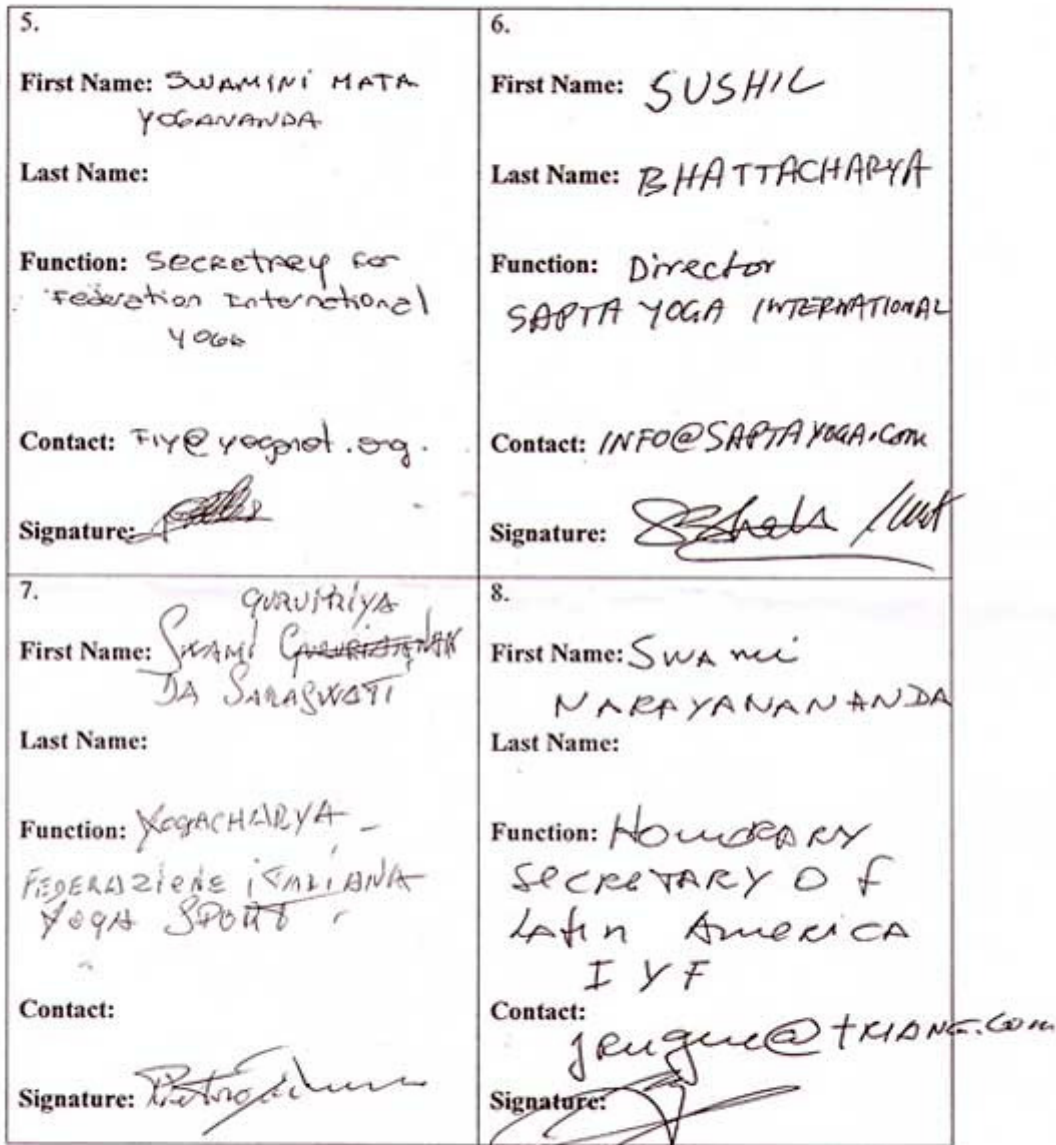 5.
First Name: SWAMINI MATA
YOGANANDA
Last Name:
Function: Secretary for
Federation International
Yoga
Contact: FIY@
Signature:
6.
First Name: SUSHIL
Last Name: BHATTACHARYA
Function: Director
SAPTA YOGA INTERNATIONAL
Contact: INFO@SAPTAYOGA.com
Signature:
7.
GURUPRIYA
First Name: SWAMI
DA SARASWATI
Last Name:
Function: YOGACHARYA -
FEDERAZIONE ITALIANA
YOGA SPORT
Contact:
Signature:
8.
First Name: Swami
NARAYANANANDA
Last Name:
Function: HONORARY
SECRETARY OF
Latin AMERICA
IYF
Contact:
Signature: